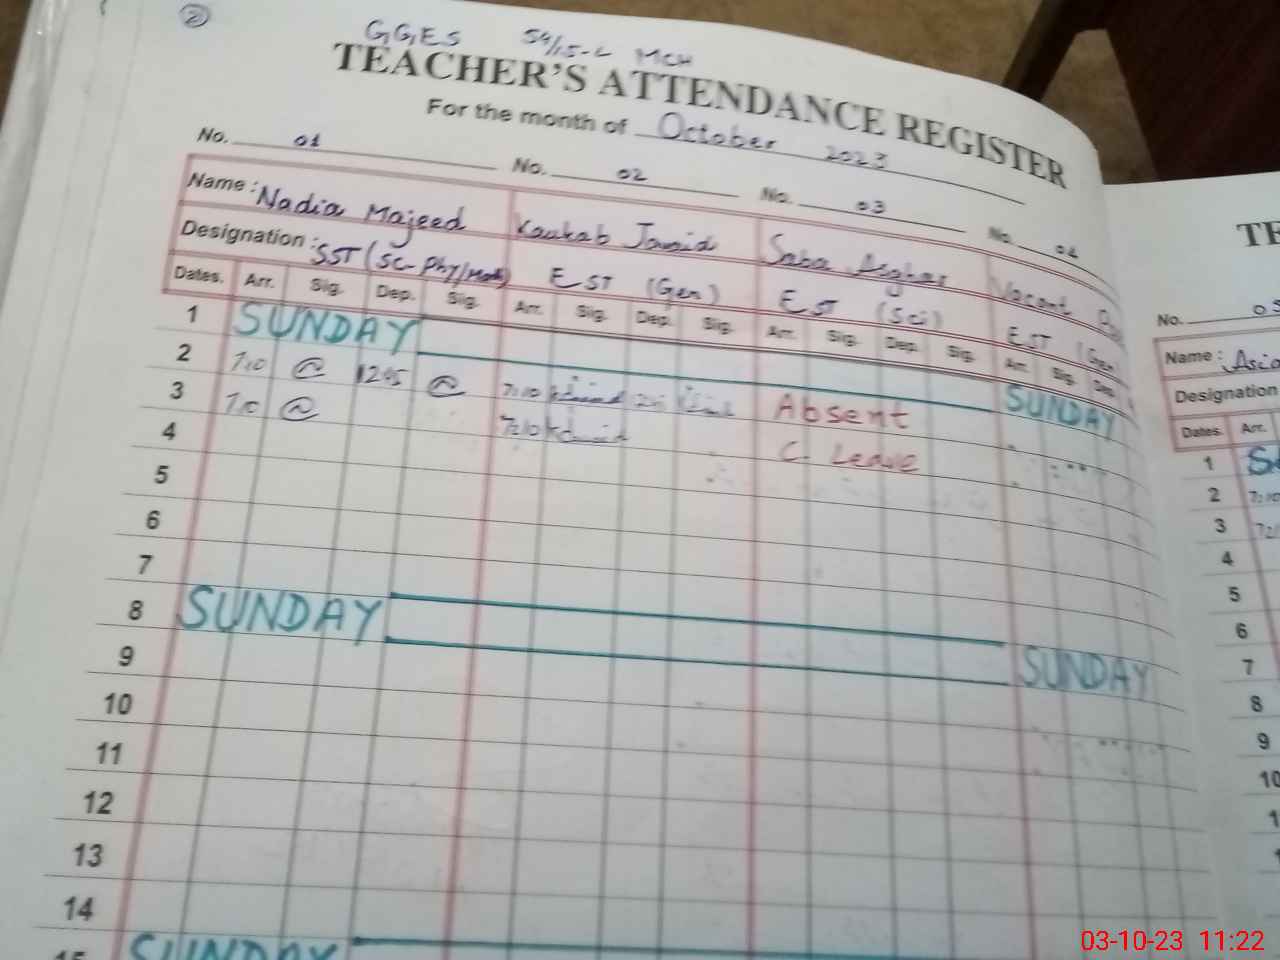 2
GGES 54/15-L MCH
TEACHER'S ATTENDANCE REGISTER
For the month of October 2023
No. 01 No. 02 No. 03 No. 04
Name: Nadia Majeed Kaukab Javaid Saba Asghar Vacant
Designation: SST (Sc-Phy/Math) EST (Gen) EST (Sci) EST (Gen
Dates. Arr. Sig. Dep. Sig. Arr. Sig. Dep. Sig. Arr. Sig. Dep. Sig. Arr. Sig. Dep
1 SUNDAY SUNDAY
2 7:10 @ 1245 @ 7:10 Absent
3 7:10 @ 7:10 C. Leave
4
5
6
7
8 SUNDAY SUNDAY
9
10
11
12
13
14
15 SUNDAY
TE
No. 05
Name: Asia
Designation
Dates. Arr.
1
2 7:10
3
4
5
6
7
8
9
10
03-10-23 11:22